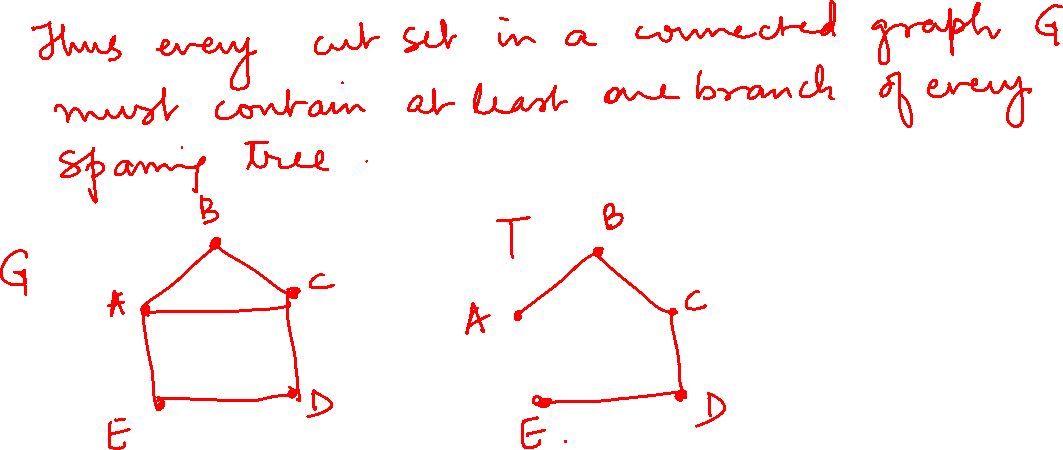 Thus every cut set in a connected graph G
must contain at least one branch of every
spaning tree.
B
T
B
G
A
C
A
C
E
D
E.
D